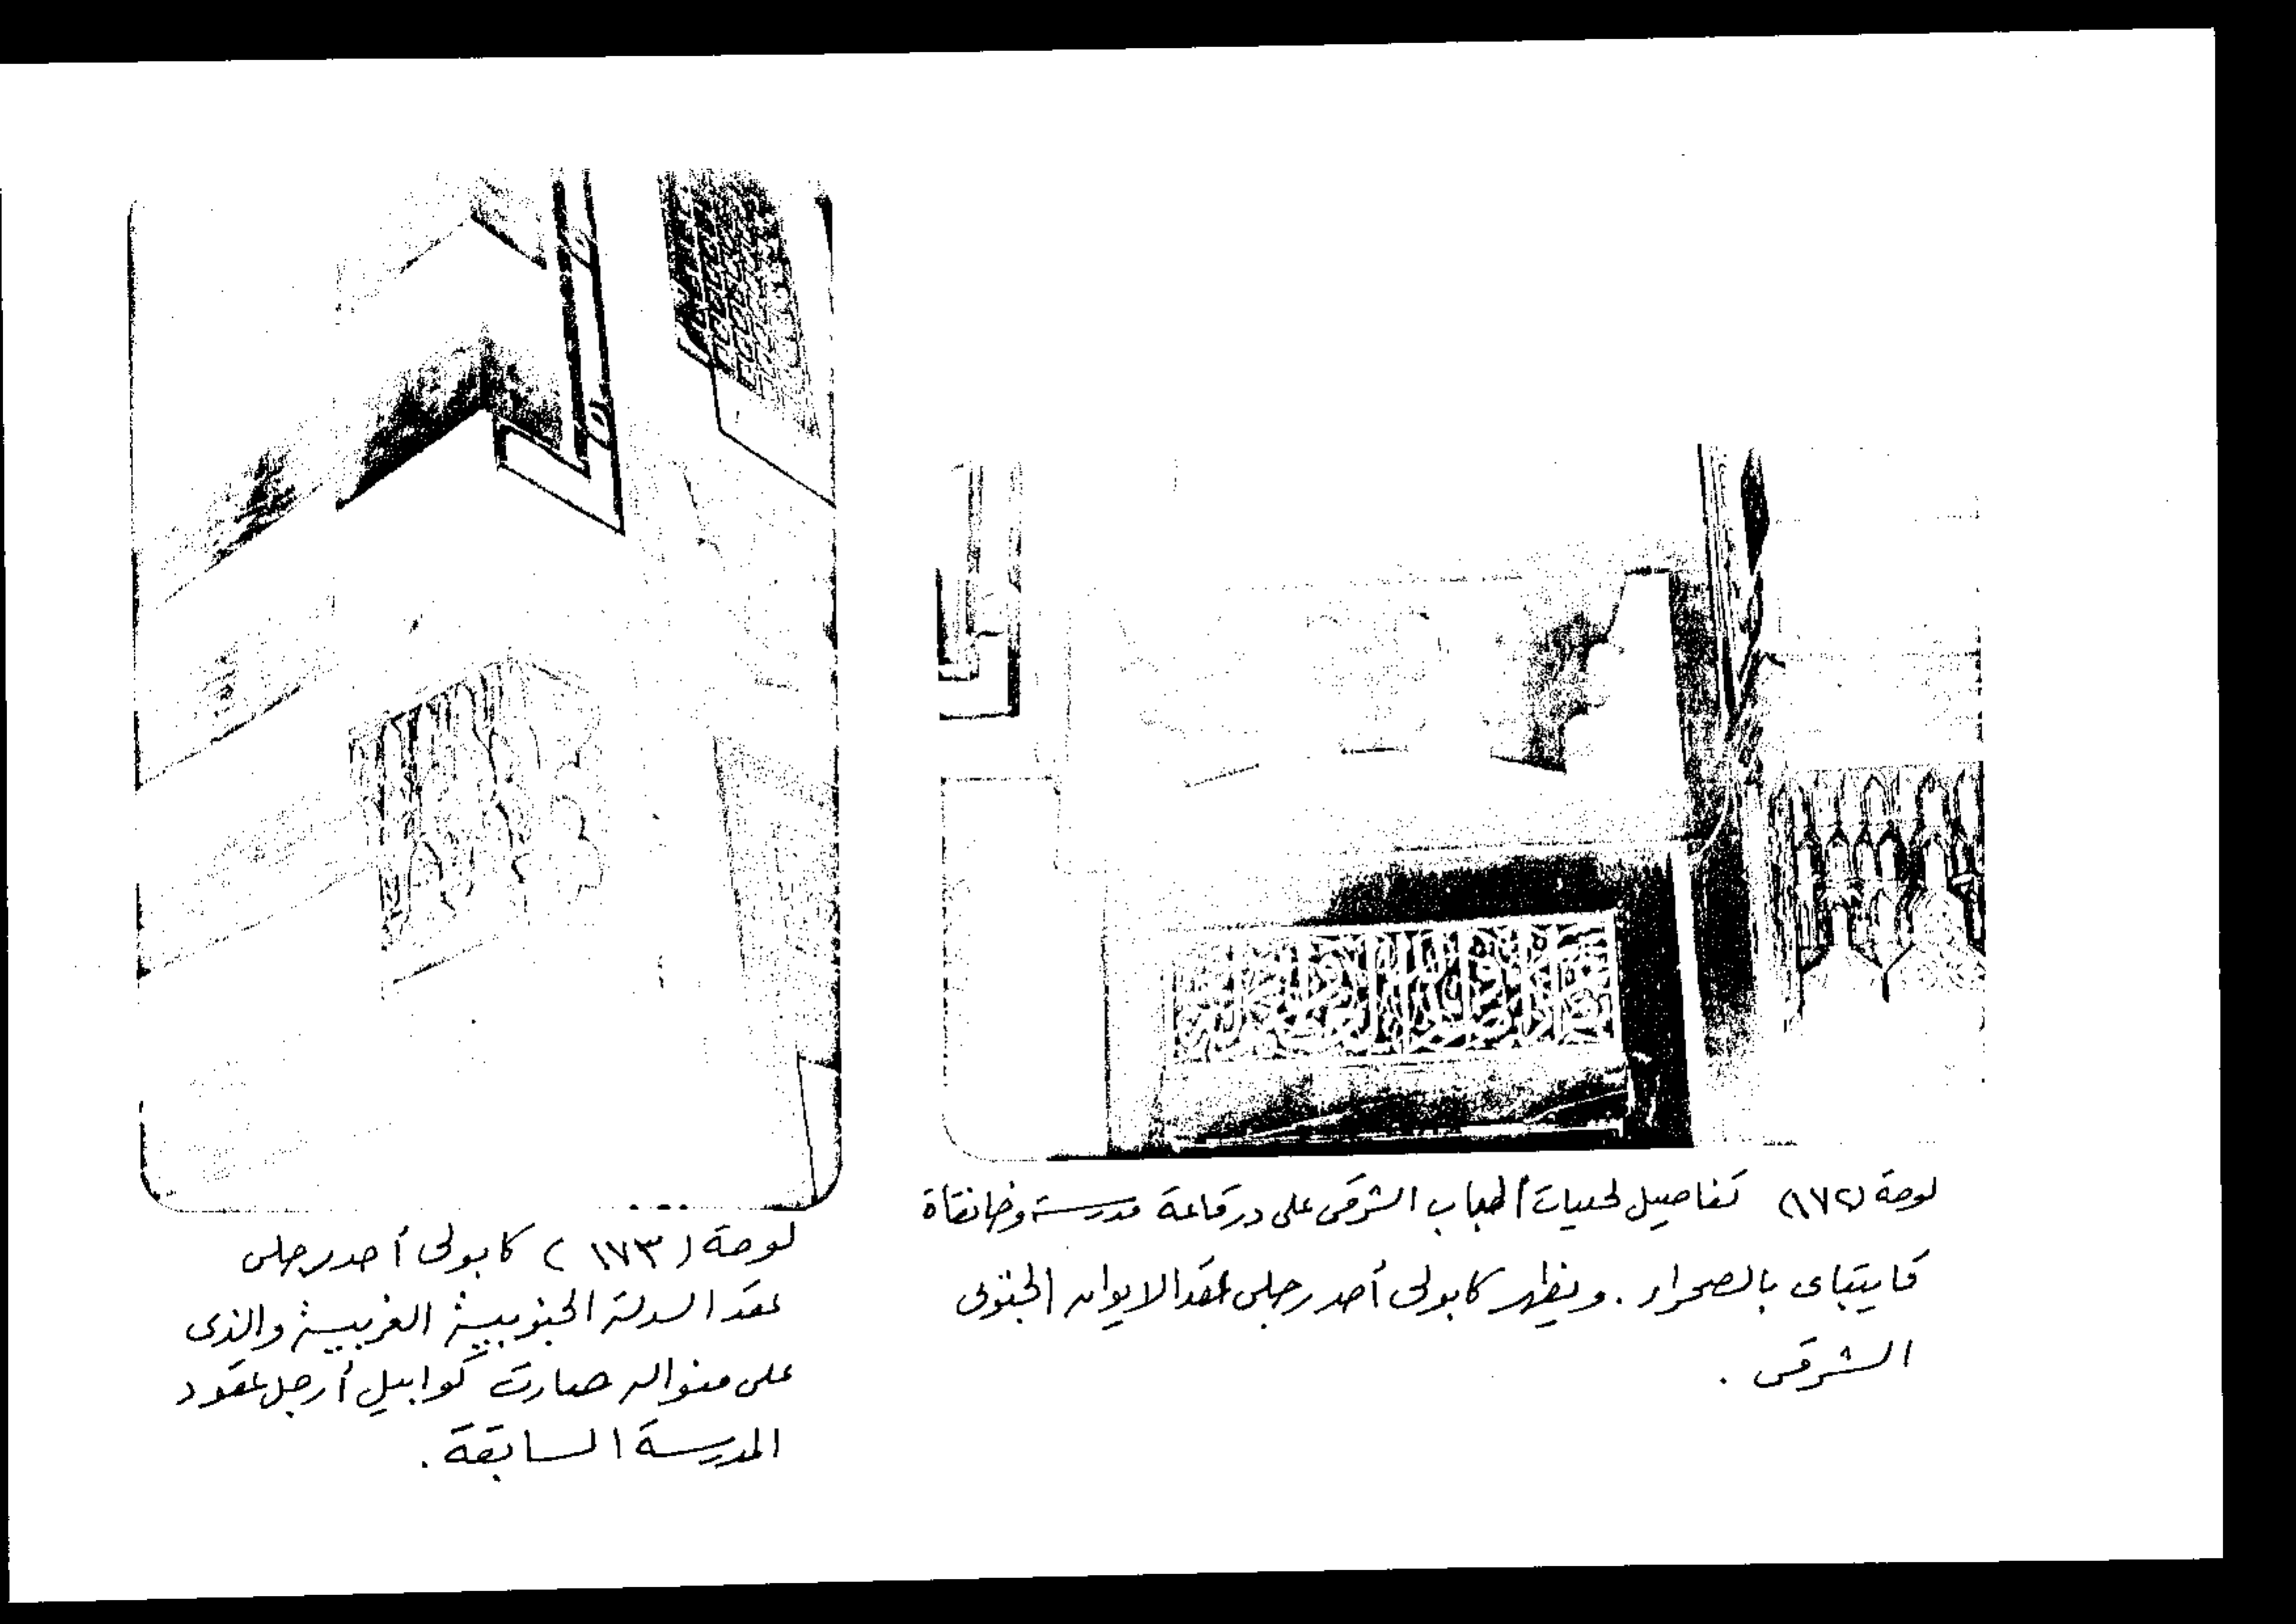 لوحة (١٧٢) تفاصيل لحليات الباب الشرقى على درقاعة مدرسة وخانقاة
قايتباى بالصحراء . ويظهر كابولى أحد رجلى عقد الايوان الجنوبى
الشرقى .
لوحة (١٧٣) كابولى أحد رجلى
عقد السدلة الجنوبية الغربية والذى
على منواله صارت كوابيل أرجل عقود
المدرسة السابقة .